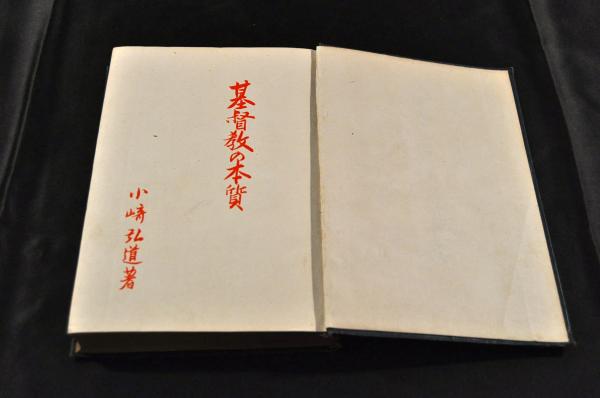 基督教の本質
小崎弘道著